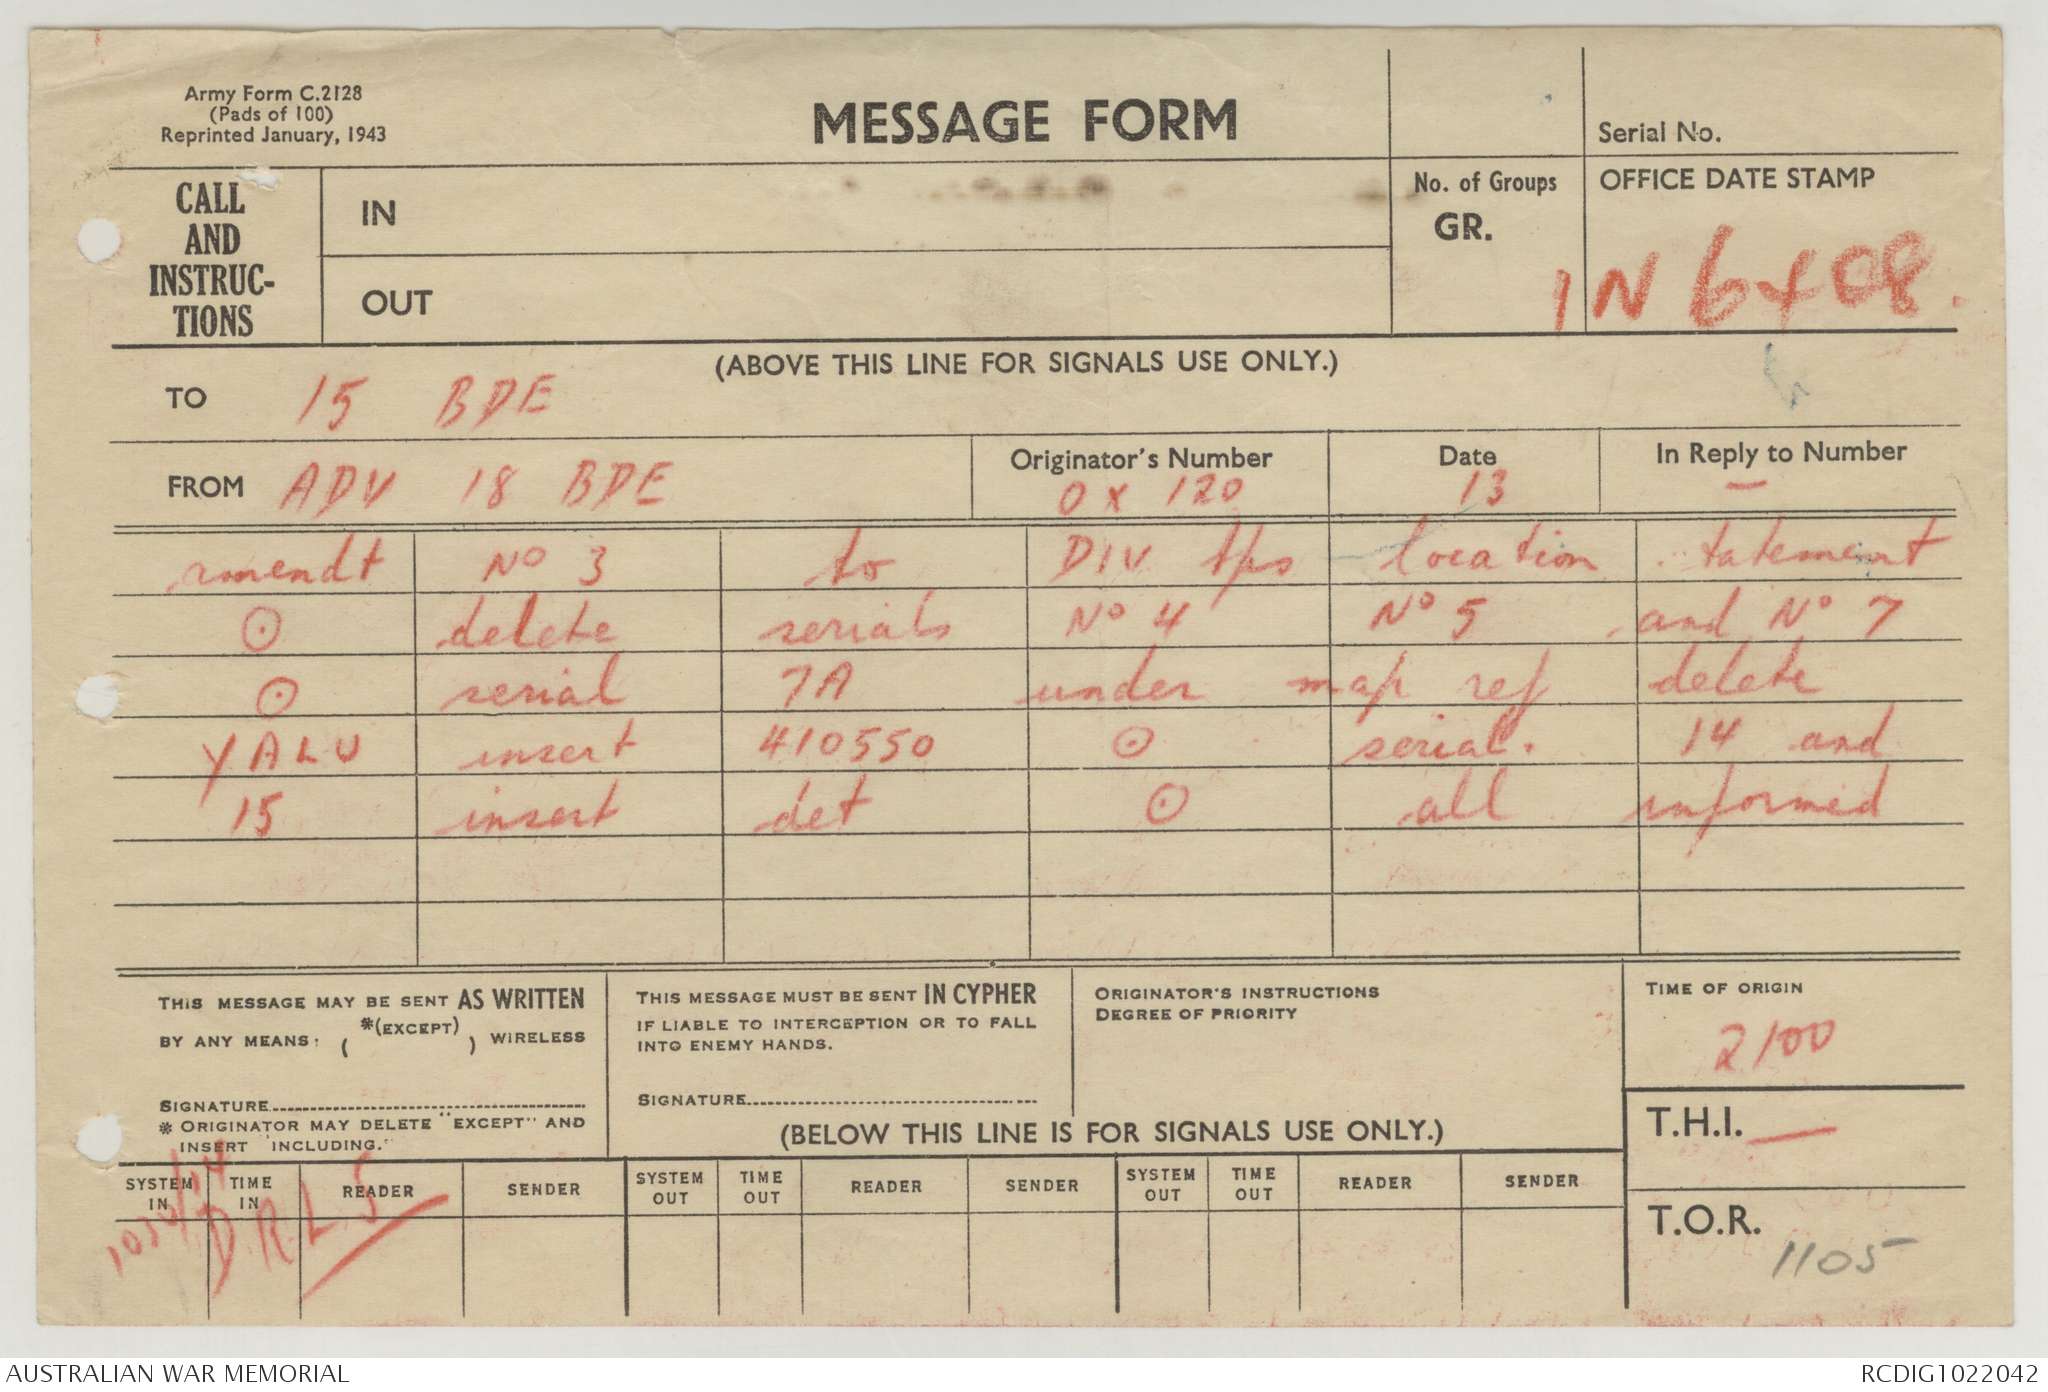 Army Form C.2128
(Pads of 100)
Reprinted January, 1943
MESSAGE FORM
Serial No.
CALL
AND
INSTRUC-
TIONS
IN
OUT
No. of Groups
GR.
OFFICE DATE STAMP
IN 6408.
(ABOVE THIS LINE FOR SIGNALS USE ONLY.)
TO 15 BDE
FROM ADV 18 BDE
Originator's Number
OX 120
Date
13
In Reply to Number
—
amendt No 3 to DIV tps location statement
⊙ delete serials No 4 No 5 and No 7
⊙ serial 7A under map ref delete
YALU insert 410550 ⊙ serial. 14 and
15 insert det ⊙ all informed
THIS MESSAGE MAY BE SENT AS WRITTEN
BY ANY MEANS: ( *(EXCEPT) ) WIRELESS
SIGNATURE
* ORIGINATOR MAY DELETE "EXCEPT" AND
INSERT "INCLUDING."
THIS MESSAGE MUST BE SENT IN CYPHER
IF LIABLE TO INTERCEPTION OR TO FALL
INTO ENEMY HANDS.
SIGNATURE
ORIGINATOR'S INSTRUCTIONS
DEGREE OF PRIORITY
TIME OF ORIGIN
2100
(BELOW THIS LINE IS FOR SIGNALS USE ONLY.)
T.H.I. —
SYSTEM IN TIME IN READER SENDER SYSTEM OUT TIME OUT READER SENDER SYSTEM OUT TIME OUT READER SENDER
DRLS
T.O.R.
1105
AUSTRALIAN WAR MEMORIAL
RCDIG1022042